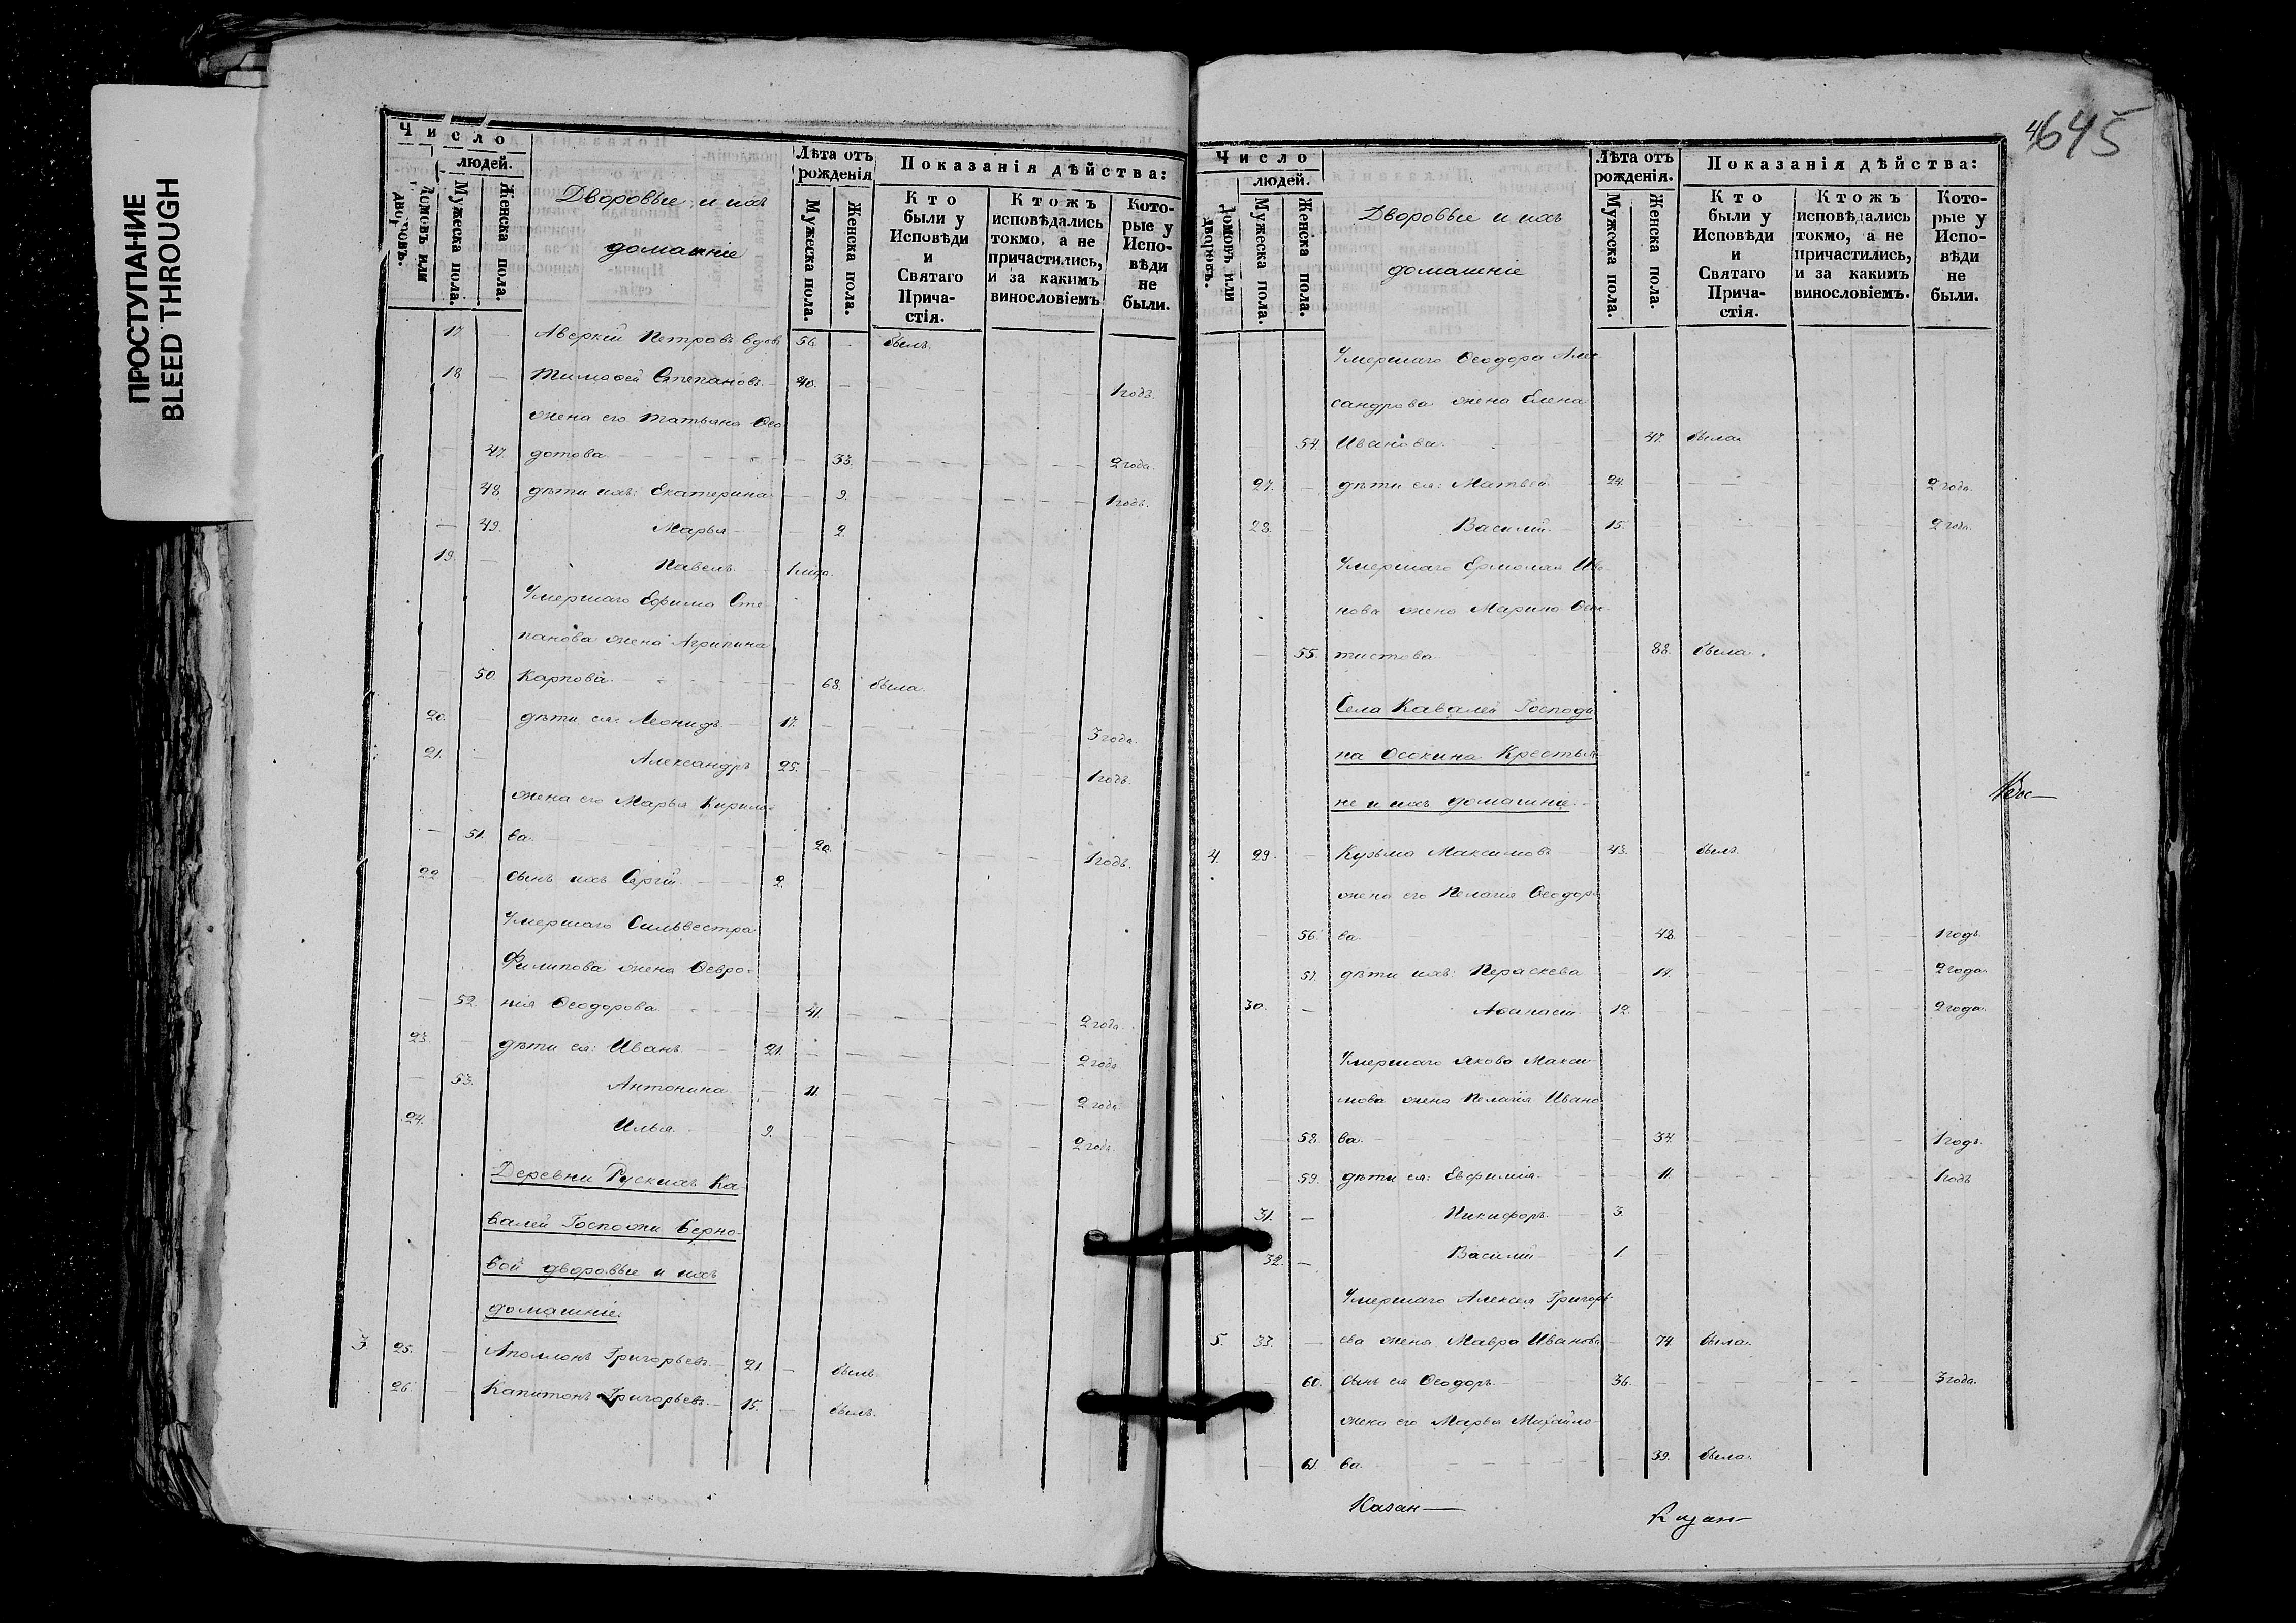 ПРОСТУПАНИЕ
BLEED THROUGH
Число
людей.
Домовъ или дворовъ.
Мужеска пола.
Женска пола.
Дворовые и ихъ
домашніе
Лѣта отъ рожденія
Мужеска пола.
Женска пола.
Показанія дѣйства:
Кто были у Исповѣди и Святаго Причастія.
Ктожъ исповѣдались токмо, а не причастились, и за какимъ винословіемъ.
Которые у Исповѣди не были.
17. — Аверкій Петровъ вдовъ 56. — былъ.
18 — Тимофей Степановъ 40. — 1 годъ.
жена его Татьяна Ѳео
— 47. дотова — 33. 2 года.
— 48. дѣти ихъ: Екатерина — 9. 1 годъ.
— 49. Марья — 2.
19. — Павелъ 1 мѣс.
Умершаго Ефима Сте-
панова жена Агрипина
— 50. Карпова — 68. была.
20. — дѣти ея: Леонидъ 17. — 3 года.
21. — Александръ 25. 1 годъ.
жена его Марья Кирило-
— 51. ва. 20. 1 годъ.
22. — сынъ ихъ Сергій 2.
Умершаго Сильвестра
Филипова жена Ѳевро-
— 52. нія Ѳеодорова 41. 2 года.
23. — дѣти ея: Иванъ 21. — 2 года
— 53. Антонина — 11. 2 года.
24. Илья 9. 2 года.
Деревни Рускихъ Ка-
валей Госпожи Берно-
вой дворовые и ихъ
домашніе.
3. 25. — Аполлонъ Григорьевъ 21. — былъ
26. — Капитонъ Григорьевъ 15. — былъ.
4645
Число
людей.
Домовъ или дворовъ.
Мужеска пола.
Женска пола.
Дворовые и ихъ
домашніе
Лѣта отъ рожденія.
Мужеска пола.
Женска пола.
Показанія дѣйства:
Кто были у Исповѣди и Святаго Причастія.
Ктожъ исповѣдались токмо, а не причастились, и за какимъ винословіемъ.
Которые у Исповѣди не были.
Умершаго Ѳеодора Але
сандрова жена Елена
— 54. Иванова. — 47. была
27. — дѣти ея: Матвей 24. 2 года.
28. — Василій 15. 2 года.
Умершаго Ермолая Ива-
нова жена Марина
— 55. тистова — 88. была.
Села Кавалей Господи
на Осокина Крестья
не и ихъ домашніе.
4. 29. — Кузьма Максимовъ 43. — былъ.
жена его Пелагія Ѳеодоро
— 56. ва. — 48. 1 годъ.
57. дѣти ихъ: Параскева 17. 2 года.
30. — Аѳанасій 12. 2 года.
Умершаго Якова Макси-
мова жена Пелагія Ивано
— 58. ва. — 34. 1 годъ.
59. дѣти ея: Евфимія 11. 1 годъ
31. — Никифоръ. 3.
32. — Василій 1.
Умершаго Алексея Григорь-
5. 33. — ева жена Мавра Иванова — 74. была.
60. сынъ ея Ѳеодоръ 36. 3 года.
жена его Марья Михайло-
— 61. ва. — 39. была.
Казан—